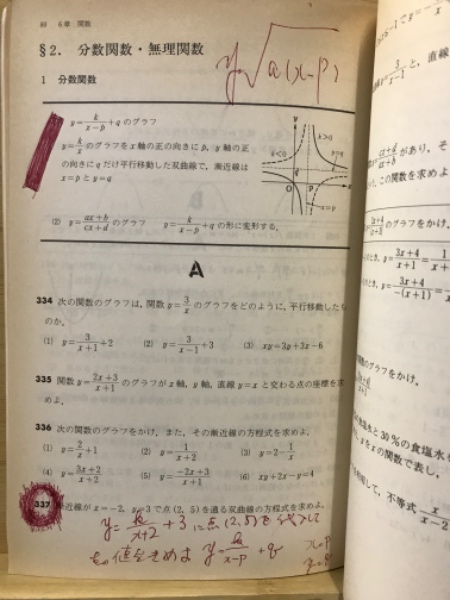 80 6章 関数
§2. 分数関数・無理関数
y=√a(x-p)
1 分数関数
y=k/(x-p)+q のグラフ
y=k/x のグラフを x 軸の正の向きに p, y 軸の正
の向きに q だけ平行移動した双曲線で, 漸近線は
x=p と y=q
k<0
k>0
y
O
p
x
y=q
x=p
(2) y=(ax+b)/(cx+d) のグラフ y=k/(x-p)+q の形に変形する.
A
334 次の関数のグラフは, 関数 y=3/x のグラフをどのように, 平行移動したも
のか.
(1) y=3/(x+1)+2 (2) y=3/(x-1)+3 (3) xy=3y+3x-6
335 関数 y=(2x+3)/(x+1) のグラフが x 軸, y 軸, 直線 y=x と交わる点の座標を求
めよ.
336 次の関数のグラフをかけ. また, その漸近線の方程式を求めよ.
(1) y=2/x+1 (2) y=1/(x+2) (3) y=2-1/x
(4) y=(3x+2)/(x+2) (5) y=(-2x+3)/(x+1) (6) xy+2x-y=4
337 漸近線が x=-2, y=3 で点 (2, 5) を通る双曲線の方程式を求めよ.
y=k/(x+2)+3 に点(2,5)を代入して
値を求める y=k/(x-p)+q
x=p
y=q
と, 直線
があり, そ
この関数を求めよ
のグラフをかけ.
y=(3x+4)/(x+1)=
y=(3x+4)/(-(x+1))=
のグラフをかけ.
食塩水と30%の食塩水を
y を x の関数で表し,
利用して, 不等式 x/(x-2)